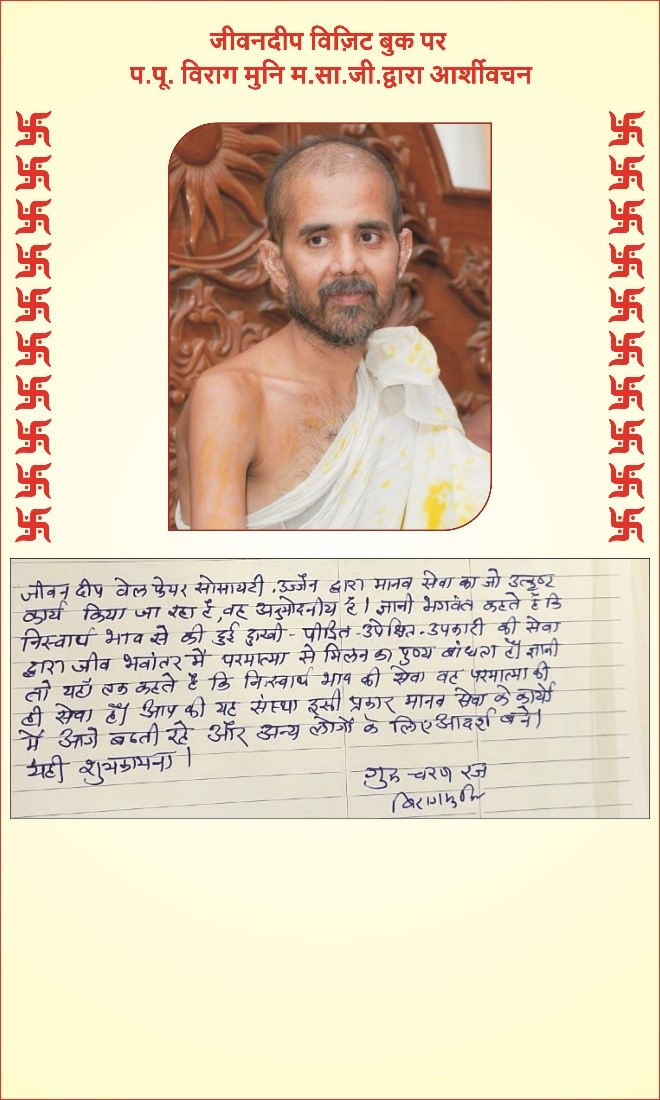 जीवनदीप विज़िट बुक पर
प.पू. विराग मुनि म.सा.जी.द्वारा आर्शीवचन
जीवन दीप वेल फेयर सोसायटी .उज्जैन द्वारा मानव सेवा का जो उत्कृष्ट
कार्य किया जा रहा है, वह अनुमोदनीय है। ज्ञानी भगवंत कहते है कि
निस्वार्थ भाव से की हुई दुःखी - पीड़ित - उपेक्षित - उपकारी की सेवा
द्वारा जीव भवांतर में परमात्मा से मिलन का पुण्य बांधता है। ज्ञानी
तो यहाँ तक कहते है कि निःस्वार्थ भाव की सेवा वह परमात्मा की
ही सेवा है। आप की यह संस्था इसी प्रकार मानव सेवा के कार्यो
में आगे बढती रहे और अन्य लोगों के लिए आदर्श बने।
यही शुभकामना।
गुरु चरण रज
विरागमुनि